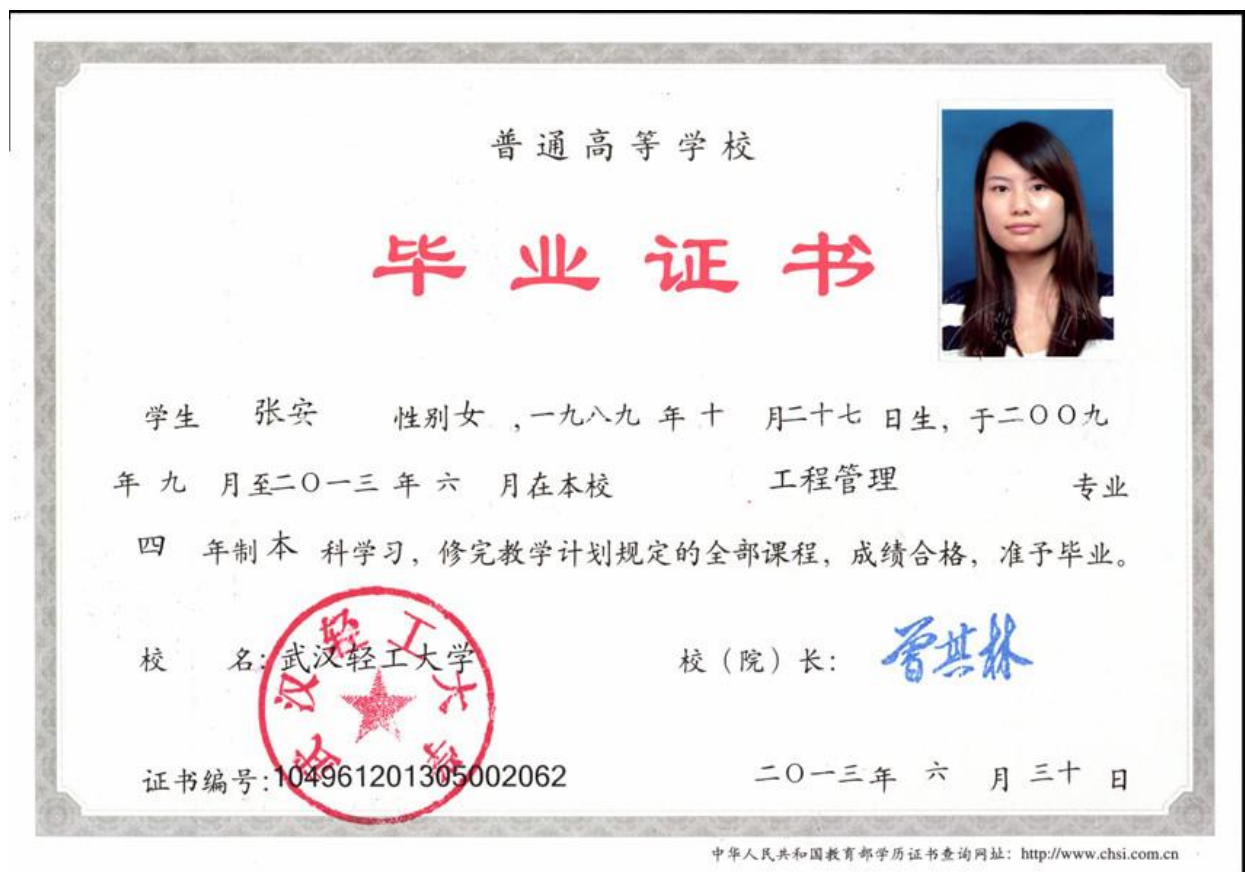 普通高等学校
毕业证书
学生 张安 性别女 ,一九八九 年 十 月二十七 日生, 于二〇〇九
年 九 月至二〇一三 年 六 月在本校 工程管理 专业
四 年制 本 科学习, 修完教学计划规定的全部课程, 成绩合格, 准予毕业。
校 名: 武汉轻工大学 校（院）长: 曾其林
武汉轻工大学
证书编号:104961201305002062 二〇一三年 六 月 三十 日
中华人民共和国教育部学历证书查询网址: http://www.chsi.com.cn